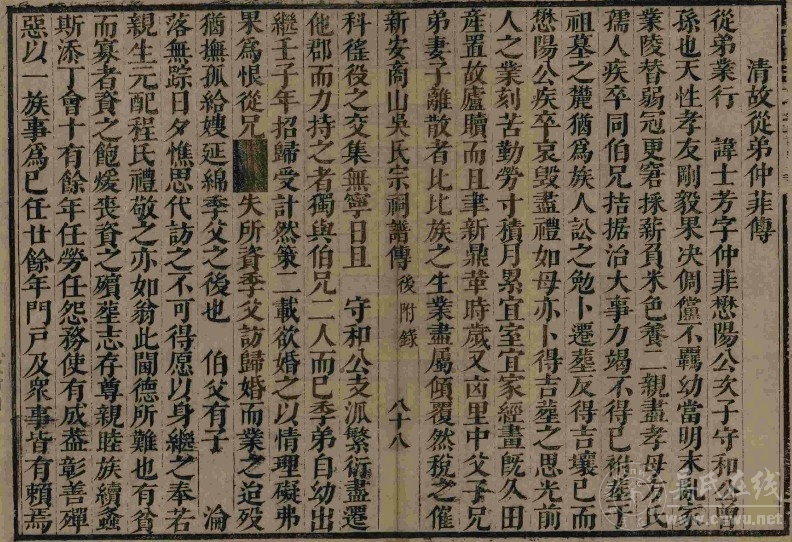 清故從弟仲菲傳
從弟業行 諱士芳字仲菲懋陽公次子守和公曾
孫也天性孝友剛毅果決倜儻不羈幼當明末亂家
業陵替弱冠更窘採薪負米色養二親盡孝母方氏
孺人疾卒同伯兄拮据治大事力竭不得已祔塟于
祖墓之麓猶為族人訟之勉卜遷塟反得吉壤已而
懋陽公疾卒哀毀盡禮如母亦卜得吉塟之思光前
人之業刻苦勤勞寸積月累宜室宜家經畫旣久田
產置故廬贖而且聿新鼎革時歲又凶里中父子兄
弟妻子離散者比比族之生業盡屬傾覆然稅之催
新安商山吳氏宗祠譜傳 後附錄 八十八
科徭役之交集無寧日且 守和公支派繁衍盡遷
他郡而力持之者獨與伯兄二人而已季弟自幼出
繼壬子年招歸受計然策二載欲婚之以情理礙弗
果為恨從兄 失所資季父訪歸婚而業之迨歿
猶撫孤給嫂延綿季父之後也 伯父有子 淪
落無踪日夕憔思代訪之不可得愿以身繼之奉若
親生元配程氏禮敬之亦如翁此閫德所難也有貧
而寡者資之飽煖喪資之殯塟志存尊親睦族續螽
斯添丁會十有餘年任勞任怨務使有成葢彰善殫
惡以一族事為己任廿餘年門戶及衆事皆有賴焉
www.cqwu.net